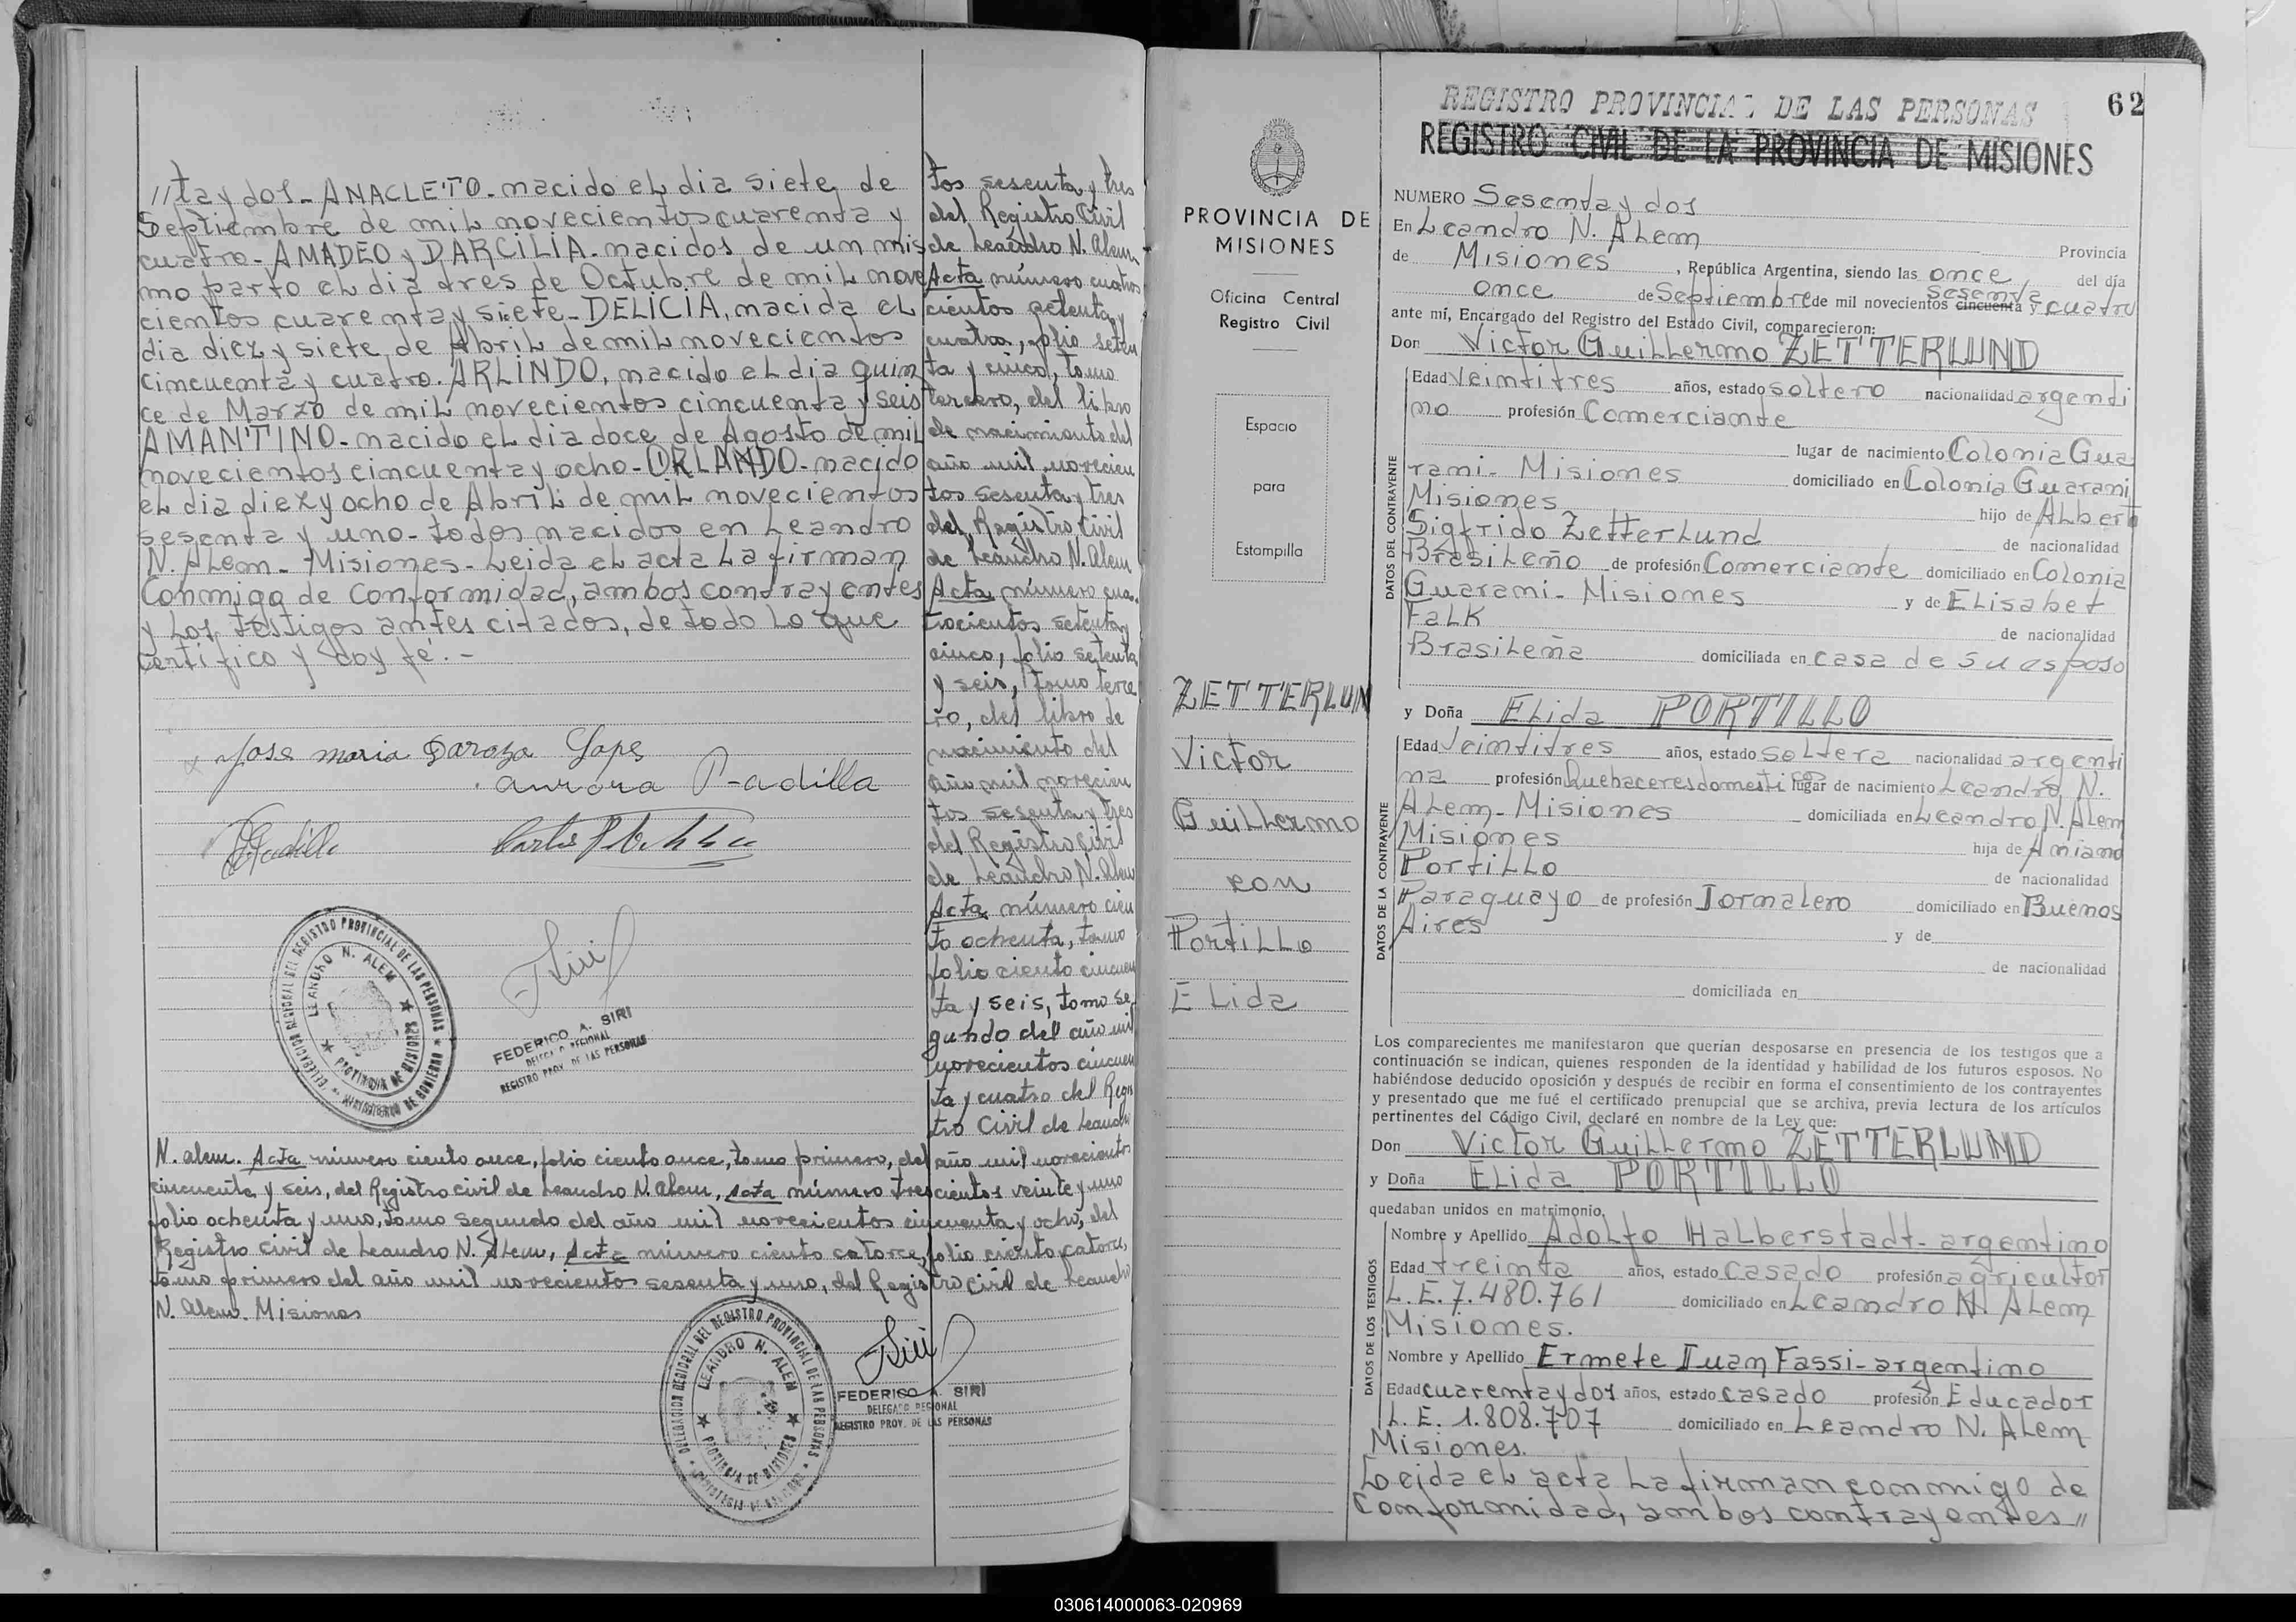 //ta y dos - ANACLETO - nacido el dia siete de
Septiembre de mil novecientos cuarenta y
cuatro - AMADEO y DARCILIA - nacidos de un mis
mo parto el dia tres de Octubre de mil nove
cientos cuarenta y siete - DELICIA, nacida el
dia diez y siete de Abril de mil novecientos
cincuenta y cuatro. ARLINDO, nacido el dia quin
ce de Marzo de mil novecientos cincuenta y seis
AMANTINO - nacido el dia doce de Agosto de mil
novecientos cincuenta y ocho - ORLANDO - nacido
el dia diez y ocho de Abril de mil novecientos
sesenta y uno - todos nacidos en Leandro
N. Alem - Misiones - Leida el acta la firman
Conmigo de Conformidad, ambos contrayentes
y los testigos antes citados, de todo lo que
Certifico y doy fé. -
Jose maria Daroza Lopes
aurora Padilla
LEANDRO N. ALEM
PROVINCIA DE MISIONES
FEDERICO A. SIRI
DELEGADO REGIONAL
REGISTRO PROV. DE LAS PERSONAS
tos sesenta y tres
del Registro Civil
de Leandro N. Alem
Acta número cuatro
cientos setenta y
cuatro, folio seten
ta y cinco, tomo
tercero, del libro
de nacimiento del
año mil novecien
tos sesenta y tres
del Registro Civil
de Leandro N. Alem
Acta número cua
trocientos setenta y
cinco, folio setenta
y seis, tomo terce
ro, del libro de
nacimiento del
año mil novecien
tos sesenta y tres
del Registro Civil
de Leandro N. Alem
Acta número cien
to ochenta, tomo
folio ciento cincuen
ta y seis, tomo se
gundo del año mil
novecientos cincuen
ta y cuatro del Regis
tro Civil de Leandro
N. Alem. Acta número ciento once, folio ciento once, tomo primero, del año mil novecientos
cincuenta y seis, del Registro civil de Leandro N. Alem, Acta número trescientos veinte y uno
folio ochenta y uno, tomo segundo del año mil novecientos cincuenta y ocho, del
Registro civil de Leandro N. Alem, Acta número ciento catorce, folio ciento catorce,
tomo primero del año mil novecientos sesenta y uno, del Registro Civil de Leandro
N. Alem. Misiones
DELEGACION REGIONAL DEL REGISTRO PROVINCIAL DE LAS PERSONAS
LEANDRO N. ALEM
PROVINCIA DE MISIONES
FEDERICO A. SIRI
DELEGADO REGIONAL
REGISTRO PROV. DE LAS PERSONAS
PROVINCIA DE
MISIONES
Oficina Central
Registro Civil
Espacio
para
Estampilla
ZETTERLUN
Victor
Guillermo
con
Portillo
Elida
REGISTRO PROVINCIAL DE LAS PERSONAS
62
REGISTRO CIVIL DE LA PROVINCIA DE MISIONES
NUMERO Sesenta y dos
En Leandro N. Alem Provincia
de Misiones, República Argentina, siendo las once del día
once de Septiembre de mil novecientos cincuenta sesenta y cuatro
ante mí, Encargado del Registro del Estado Civil, comparecieron:
Don Victor Guillermo ZETTERLUND
DATOS DEL CONTRAYENTE
Edad Veintitres años, estado soltero nacionalidad argenti
no profesión Comerciante
lugar de nacimiento Colonia Gua
rani - Misiones domiciliado en Colonia Guarani
Misiones hijo de Albert
Sigfrido Zetterlund de nacionalidad
Brasileño de profesión Comerciante domiciliado en Colonia
Guarani - Misiones y de Elisabet
Falk de nacionalidad
Brasileña domiciliada en casa de su esposo
y Doña Elida PORTILLO
DATOS DE LA CONTRAYENTE
Edad Veintitres años, estado soltera nacionalidad argenti
na profesión Quehaceres domesticos lugar de nacimiento Leandro N.
Alem - Misiones domiciliada en Leandro N. Alem
Misiones hija de Aniano
Portillo de nacionalidad
Paraguayo de profesión Jornalero domiciliado en Buenos
Aires y de
de nacionalidad
domiciliada en
Los comparecientes me manifestaron que querían desposarse en presencia de los testigos que a
continuación se indican, quienes responden de la identidad y habilidad de los futuros esposos. No
habiéndose deducido oposición y después de recibir en forma el consentimiento de los contrayentes
y presentado que me fué el certificado prenupcial que se archiva, previa lectura de los artículos
pertinentes del Código Civil, declaré en nombre de la Ley que:
Don Victor Guillermo ZETTERLUND
y Doña Elida PORTILLO
quedaban unidos en matrimonio.
DATOS DE LOS TESTIGOS
Nombre y Apellido Adolfo Halberstadt - argentino
Edad treinta años, estado casado profesión agricultor
L.E. 7.480.761 domiciliado en Leandro N. Alem
Misiones.
Nombre y Apellido Ermete Juan Fassi - argentino
Edad cuarenta y dos años, estado casado profesión Educador
L.E. 1.808.707 domiciliado en Leandro N. Alem
Misiones.
Leida el acta la firman conmigo de
Conformidad, ambos contrayentes //
030614000063-020969